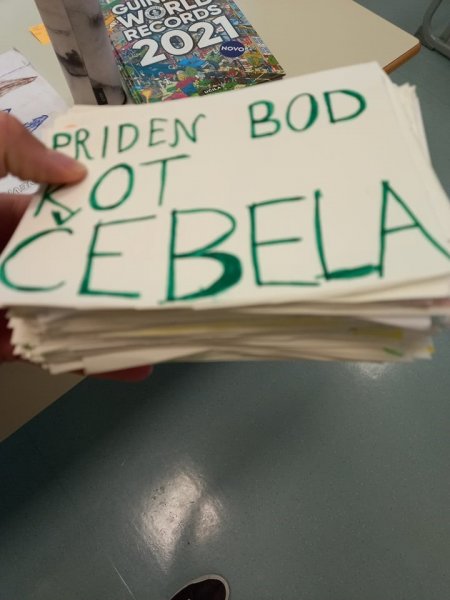 GUINNESS
WORLD
RECORDS
2021
NOVO
PRIDEN BOD
KOT
ČEBELA